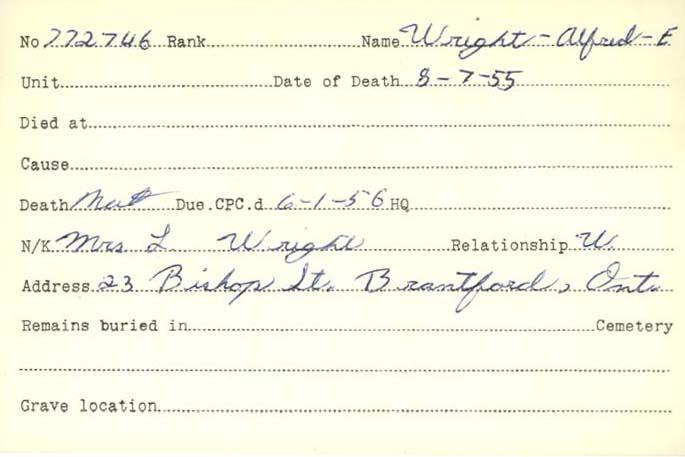 No 772746 Rank Name Wright - Alfred - E
Unit Date of Death 8-7-55
Died at
Cause
Death Not Due.CPC.d 6-1-56 HQ
N/K Mrs L Wright Relationship W
Address 23 Bishop St. Brantford, Ont.
Remains buried in Cemetery
Grave location